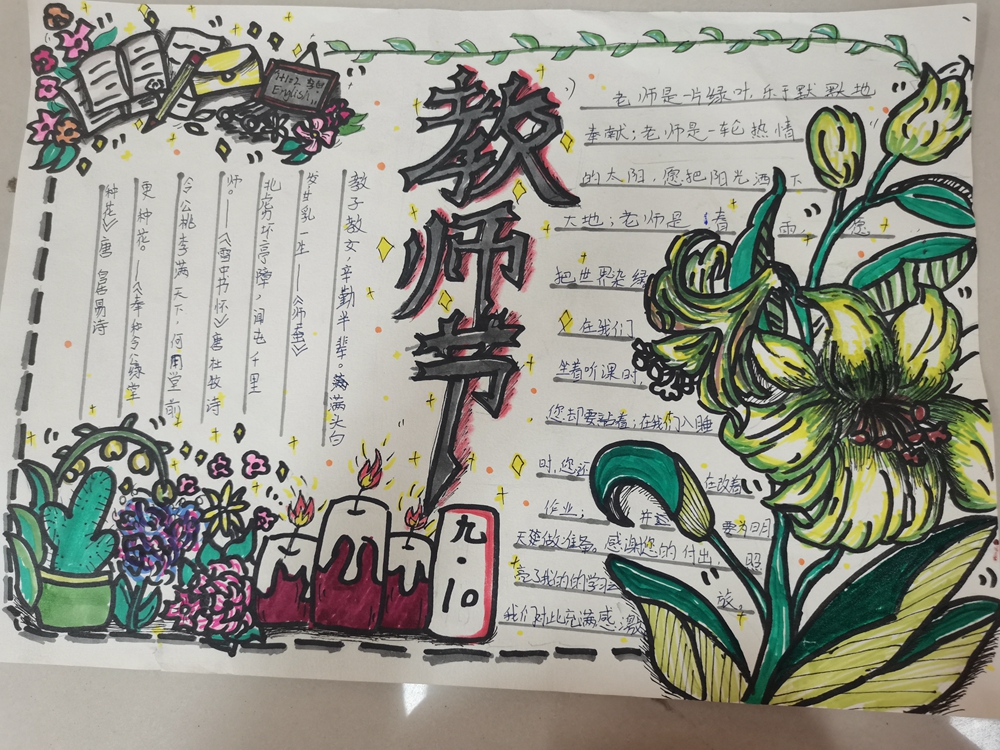 1+1=2
English
教师节
教子教女,辛勤半辈。满满头白
发生乳一生——《师
北虏坏亭障,闻屯千里
师。——《雪中书怀》唐杜牧诗
令公桃李满天下,何用堂前
更种花。——《奉和令公绿堂
种花》唐 居易诗
老师是一片绿叶,乐于默默地
奉献;老师是一轮热情
的太阳,愿把阳光洒下
大地;老师是 春 雨, 愿
把世界染绿
在我们
坐着听课时,
您却要站着;在我们入睡
时,您还 在改着
作业; 明日
天 做准备。感谢您的付出, 照
亮了我的的学习 旅。
我们对此充满感激
九·10